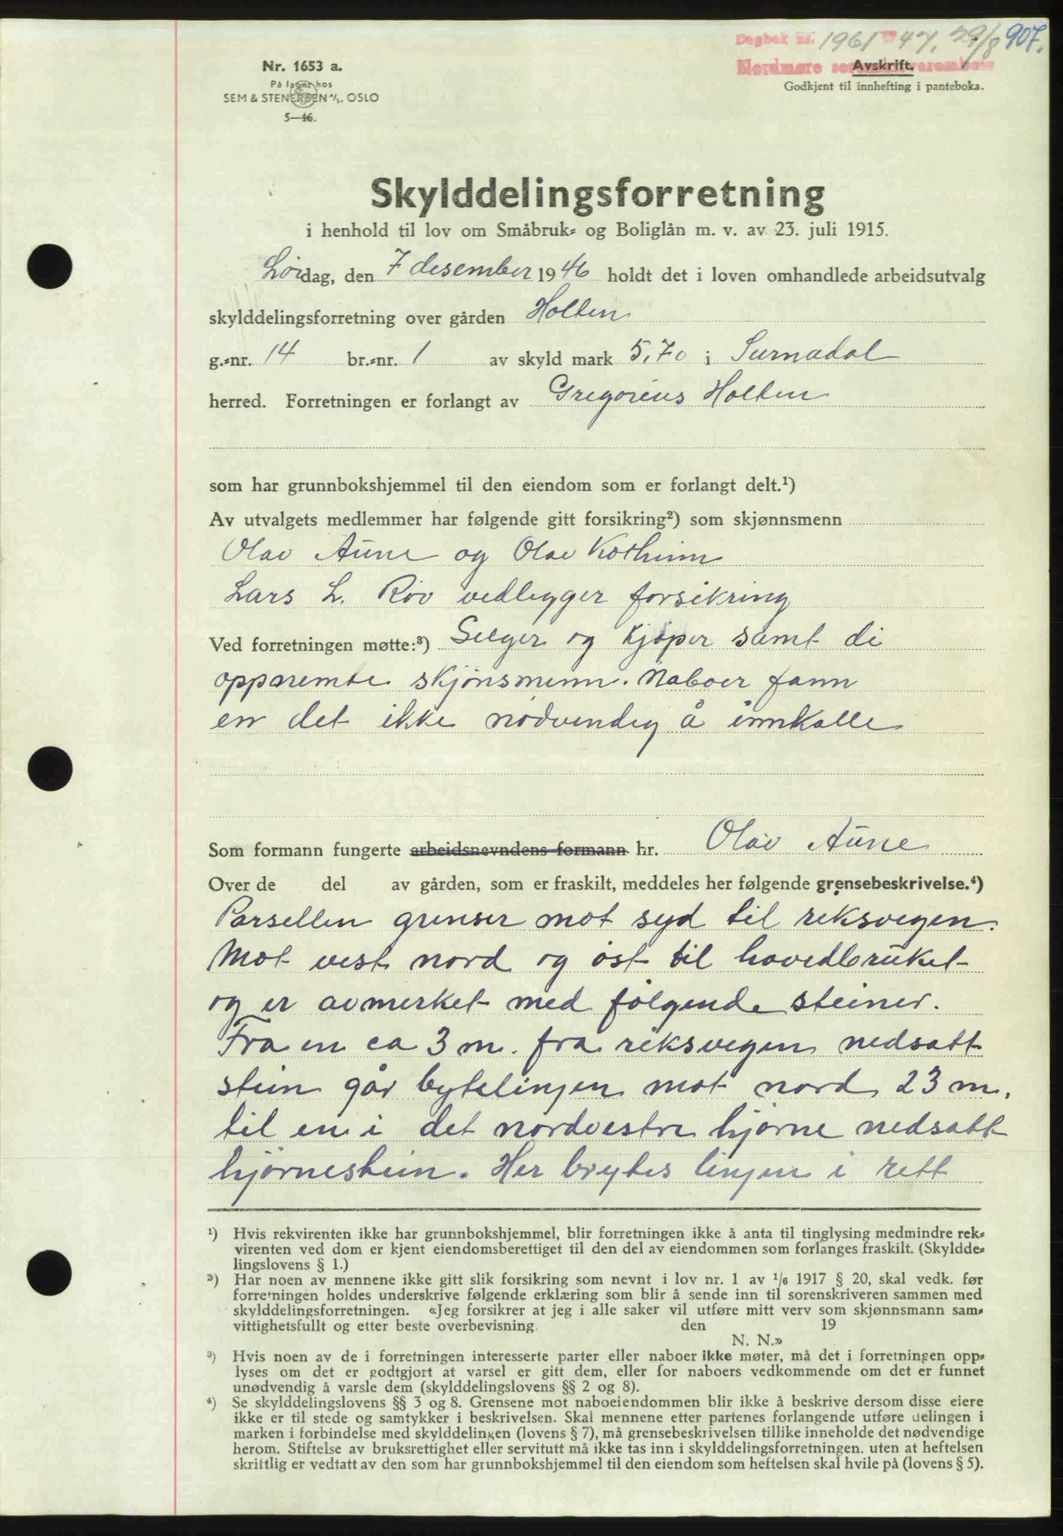 Dagbok nr. 1961 19 47. 29/8 907.
Nordmøre sorenskriverembete
Avskrift.
Godkjent til innhefting i panteboka.
Nr. 1653 a.
På lager hos
SEM & STENERSEN A/S. OSLO
5—46.
Skylddelingsforretning
i henhold til lov om Småbruk- og Boliglån m. v. av 23. juli 1915.
Lørdag, den 7 desember 1946 holdt det i loven omhandlede arbeidsutvalg
skylddelingsforretning over gården Holten
g.-nr. 14 br.-nr. 1 av skyld mark 5,70 i Surnadal
herred. Forretningen er forlangt av Gregorius Holten
som har grunnbokshjemmel til den eiendom som er forlangt delt.¹)
Av utvalgets medlemmer har følgende gitt forsikring²) som skjønnsmenn
Olav Aune og Olav Kvitheim
Lars L. Røv vedlegger forsikring
Ved forretningen møtte:³) Selger og kjøper samt di
oppnemte skjønsmenn. Naboer fann
en det ikke nødvendig å innkalle
Som formann fungerte arbeidsnevndens formann hr. Olav Aune
Over de del av gården, som er fraskilt, meddeles her følgende grensebeskrivelse.⁴)
Parsellen grenser mot syd til riksvegen.
Mot vest nord og øst til hovedbruket
og er avmerket med følgende steiner.
Fra en ca 3 m. fra riksvegen nedsatt
stein går bytelinjen mot nord 23 m.
til en i det nordvestre hjørne nedsatt
hjørnestein. Her brytes linjen i rett
¹) Hvis rekvirenten ikke har grunnbokshjemmel, blir forretningen ikke å anta til tinglysing medmindre rek-
virenten ved dom er kjent eiendomsberettiget til den del av eiendommen som forlanges fraskilt. (Skyldde-
lingslovens § 1.)
²) Har noen av mennene ikke gitt slik forsikring som nevnt i lov nr. 1 av 1/6 1917 § 20, skal vedk. før
forretningen holdes underskrive følgende erklæring som blir å sende inn til sorenskriveren sammen med
skylddelingsforretningen. «Jeg forsikrer at jeg i alle saker vil utføre mitt verv som skjønnsmann sam-
vittighetsfullt og etter beste overbevisning. den 19
N. N.»
³) Hvis noen av de i forretningen interesserte parter eller naboer ikke møter, må det i forretningen opp-
lyses om det er godtgjort at varsel er gitt dem, eller for naboers vedkommende om det er funnet
unødvendig å varsle dem (skylddelingslovens §§ 2 og 8).
⁴) Se skylddelingslovens §§ 3 og 8. Grensene mot naboeiendommen blir ikke å beskrive dersom disse eiere
ikke er til stede og samtykker i beskrivelsen. Skal mennene etter partenes forlangende utføre delingen i
marken i forbindelse med skylddelingen (lovens § 7), må grensebeskrivelsen tillike inneholde det nødvendige
herom. Stiftelse av bruksrettighet eller servitutt må ikke tas inn i skylddelingsforretningen, uten at heftelsen
skriftlig er vedtatt av den som har grunnbokshjemmel til den eiendom som heftelsen skal hvile på (lovens § 5).